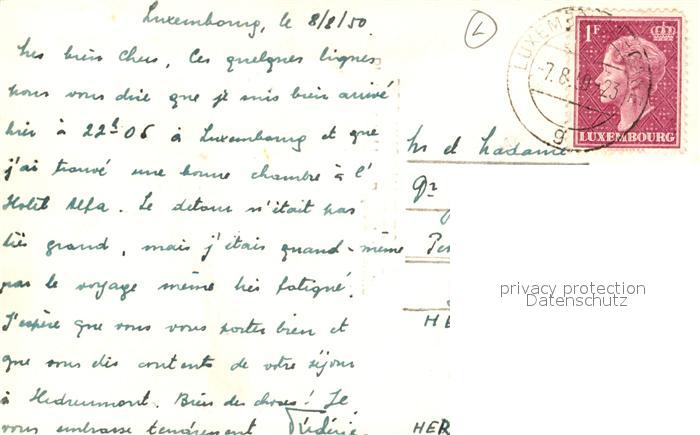 Luxembourg, le 8/8/50
L
très bien chers, Ces quelques lignes
pour vous dire que je suis bien arrivé
hier à 22h06 à Luxembourg et que
j'ai trouvé une bonne chambre à l'
Hotel Alfa. Le detour n'était pas
très grand, mais j'étais quand-même
par le voyage même très fatigué.
J'espère que vous vous portez bien et
que vous êtes contents de votre séjour
à Herbeumont. Bien des choses! Je
vous embrasse tendrement
1F
LUXEMBOURG
-7.8. -23
9
M et Madame
HE
HER
privacy protection
Datenschutz